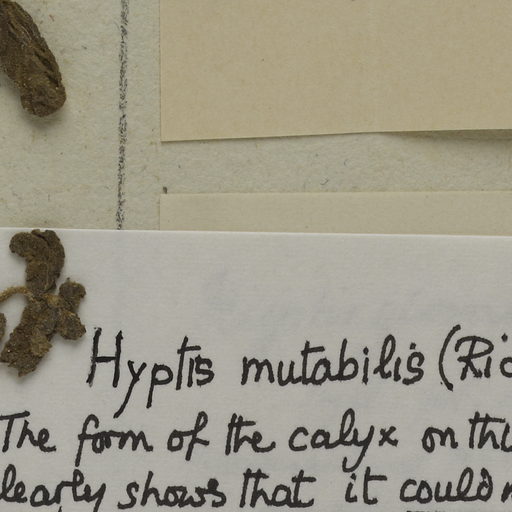 Hyptis mutabilis (Ric
The form of the calyx on thi
learly shows that it could n